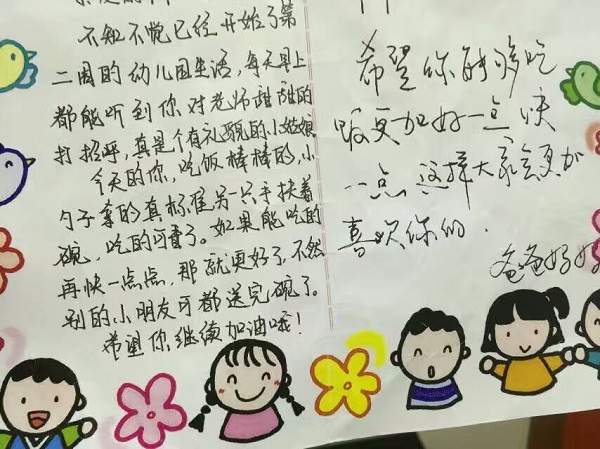 不知不觉已经开始了第
二周的幼儿园生活，每天早上
都能听到你对老师甜甜的
打招呼，真是个有礼貌的小姑娘
今天的你，吃饭棒棒的，小
勺子拿的真标准另一只手扶着
碗，吃的可香了。如果能吃的
再快一点点，那就更好了，不然
别的小朋友可都送完碗了。
希望你继续加油哦！
希望你能够吃
饭更加好一点快
一点 这样大家会更加
喜欢你的．
爸爸妈妈